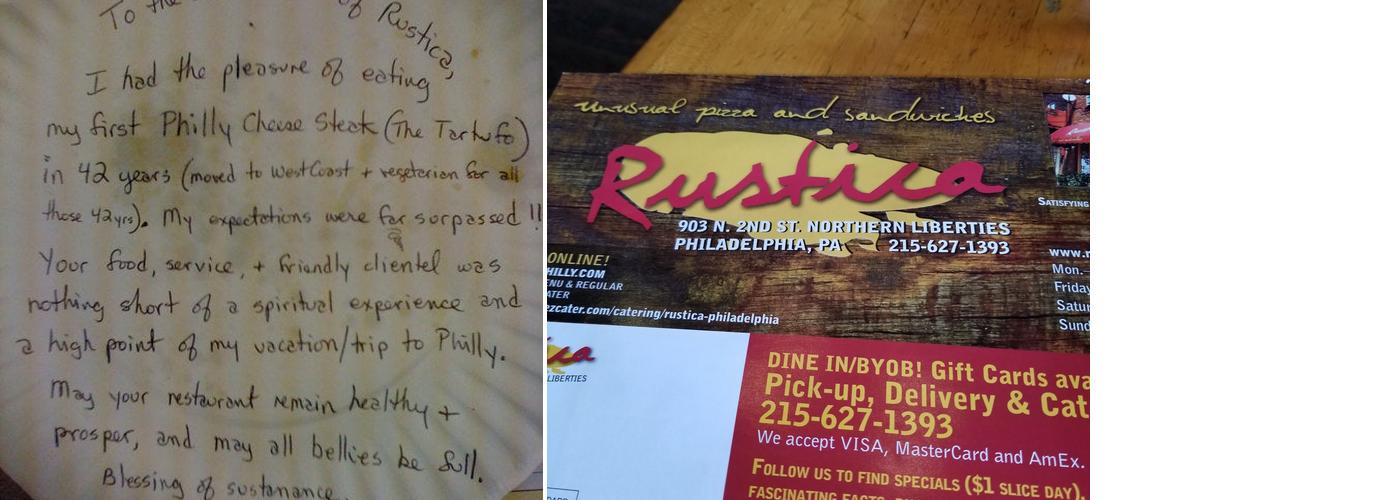 To the of Rustica,
I had the pleasure of eating
my first Philly Cheese Steak (The Tartufo)
in 42 years (moved to West Coast + vegetarian for all
those 42 yrs). My expectations were far surpassed!!
Your food, service, + friendly clientel was
nothing short of a spiritual experience and
a high point of my vacation/trip to Philly.
May your restaurant remain healthy +
prosper, and may all bellies be full.
Blessing of sustanance
unusual pizza and sandwiches
Rustica
903 N. 2ND ST. NORTHERN LIBERTIES
PHILADELPHIA, PA 215-627-1393
ONLINE!
HILLY.COM
ENU & REGULAR
ATER
ezcater.com/catering/rustica-philadelphia
SATISFYING
www.r
Mon.-
Friday
Satur
Sund
ica
LIBERTIES
DINE IN/BYOB! Gift Cards ava
Pick-up, Delivery & Cat
215-627-1393
We accept VISA, MasterCard and AmEx.
FOLLOW US TO FIND SPECIALS ($1 SLICE DAY),
FASCINATING FACTS,